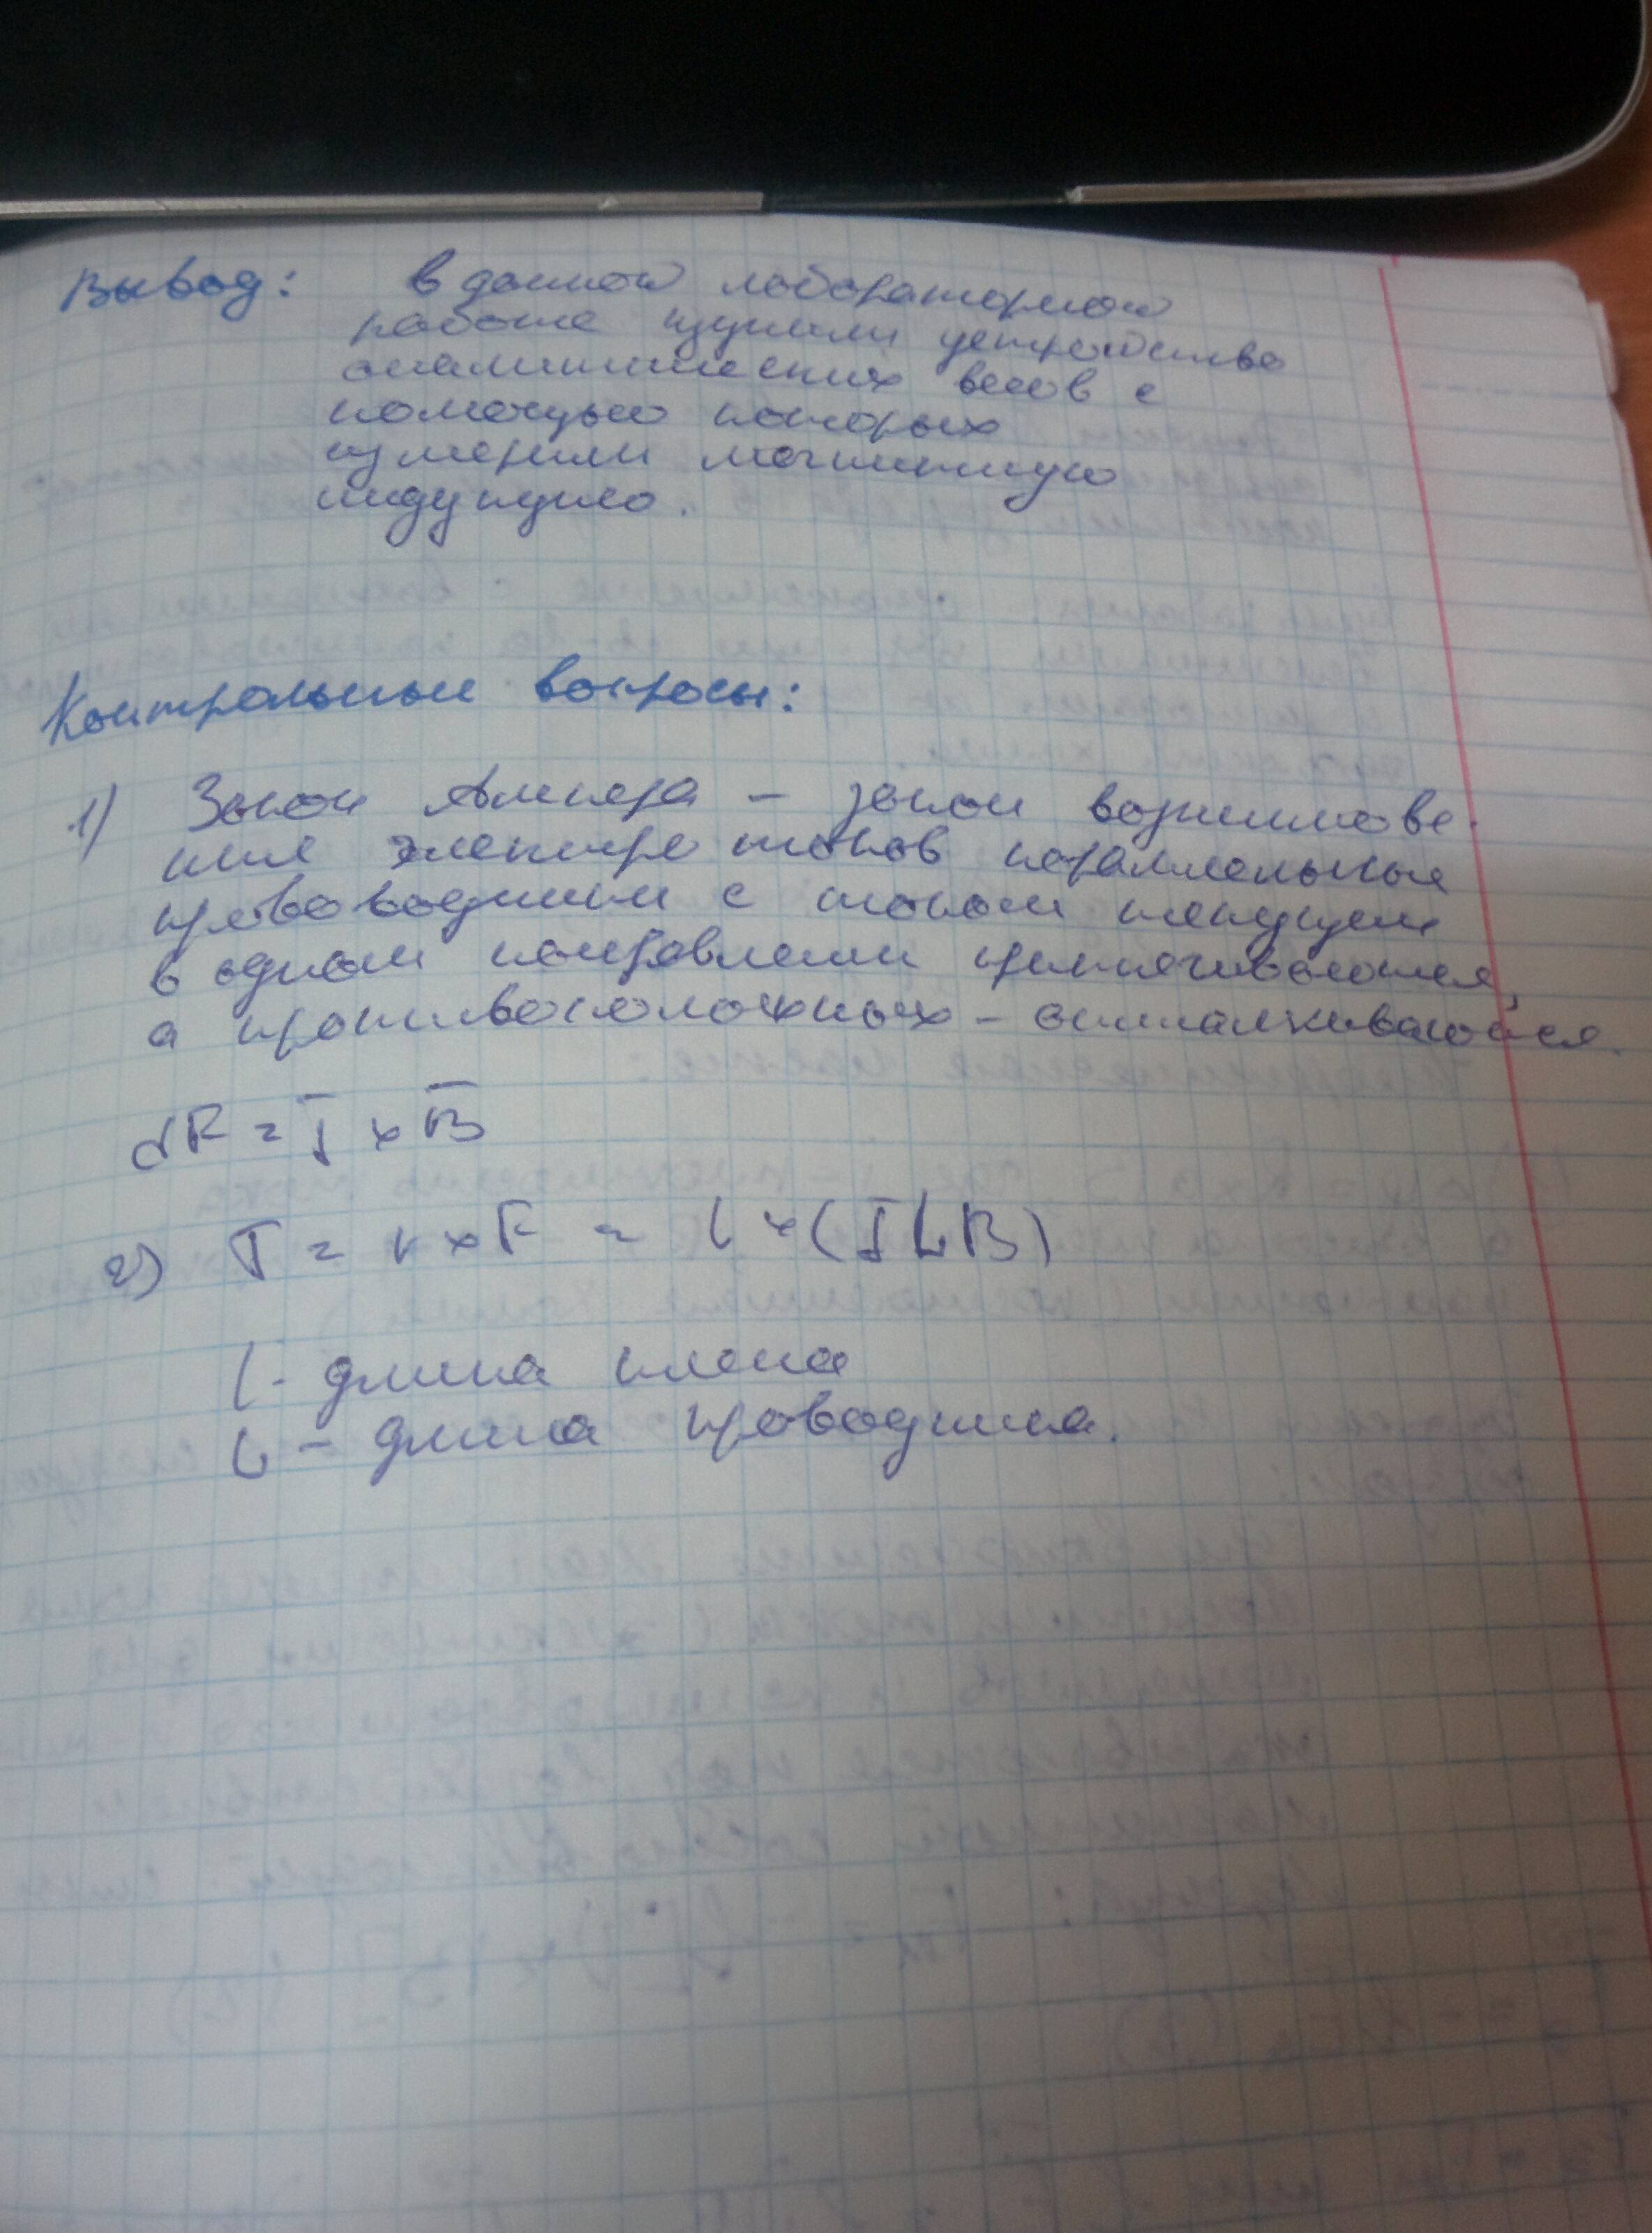 Вывод: в данной лабораторной
работе изучили устройство
аналитических весов с
помощью которых
измерили магнитную
индукцию.
Контрольные вопросы:
1) Закон Ампера – закон возникнове
ния электро токов параллельные
проводники с током текущем
в одном направлении притягиваются,
а противоположных – отталкиваются.
dF = I × B
2) T = r × F = l × (ILB)
l - длина плеча
L – длина проводника.